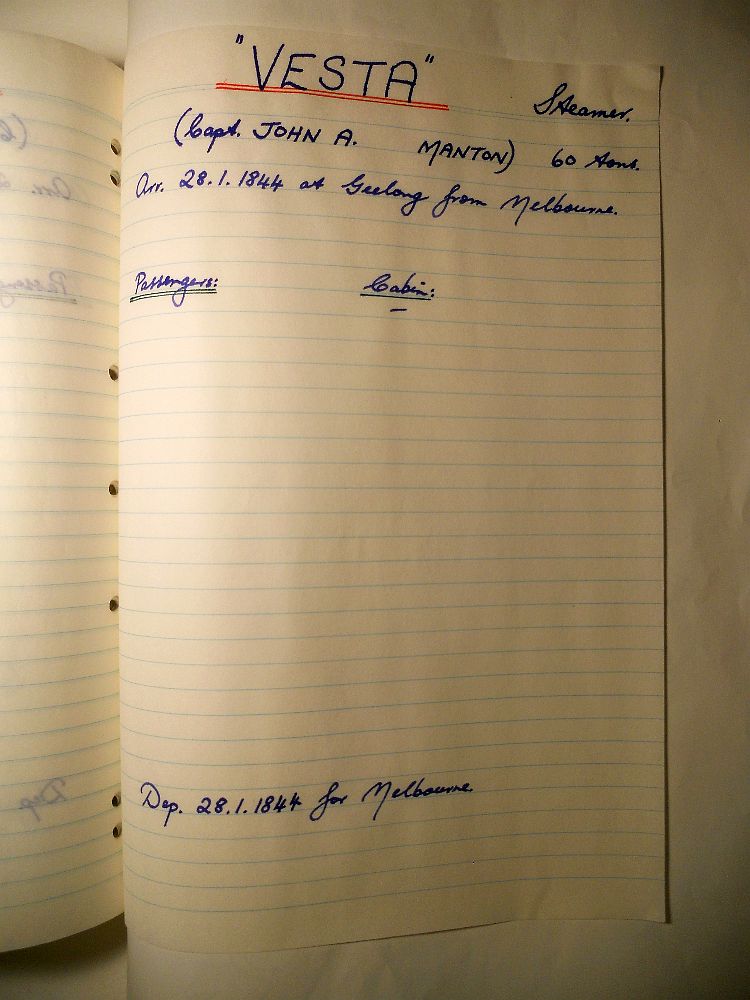 "VESTA"
Steamer.
(Capt. JOHN A. MANTON) 60 tons.
Arr. 28.1.1844 at Geelong from Melbourne.
Passengers: Cabin:
–
Dep. 28.1.1844 for Melbourne.